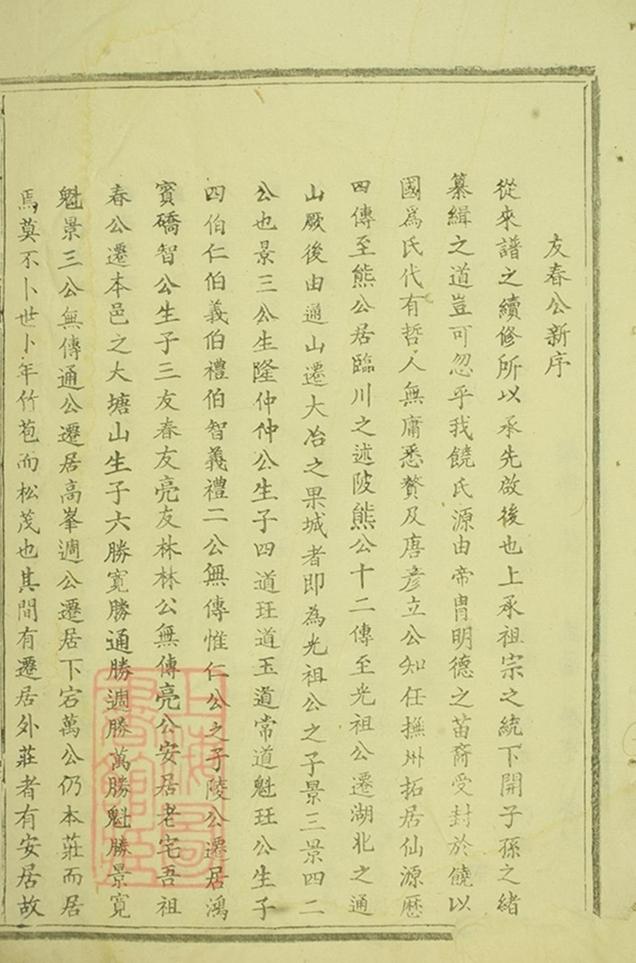 友春公新序
從來譜之續修所以承先啟後也上承祖宗之統下開子孫之緒
纂緝之道豈可忽乎我饒氏源由帝冑明德之苗裔受封於饒以
國爲氏代有哲人無庸悉贅及唐彥立公知任撫州拓居仙源歷
四傳至熊公居臨川之述陂熊公十二傳至光祖公遷湖北之通
山厥後由通山遷大冶之果城者即為光祖公之子景三景四二
公也景三公生隆仲仲公生子四道玨道玉道常道魁玨公生子
四伯仁伯義伯禮伯智義禮二公無傳惟仁公之子陵公遷居鴻
賓磻智公生子三友春友亮友林林公無傳亮公安居老宅吾祖
春公遷本邑之大塘山生子六勝寬勝通勝週勝萬勝魁勝景寬
魁景三公無傳通公遷居高峯週公遷居下宕萬公仍本莊而居
焉莫不卜世卜年竹苞而松茂也其間有遷居外莊者有安居故